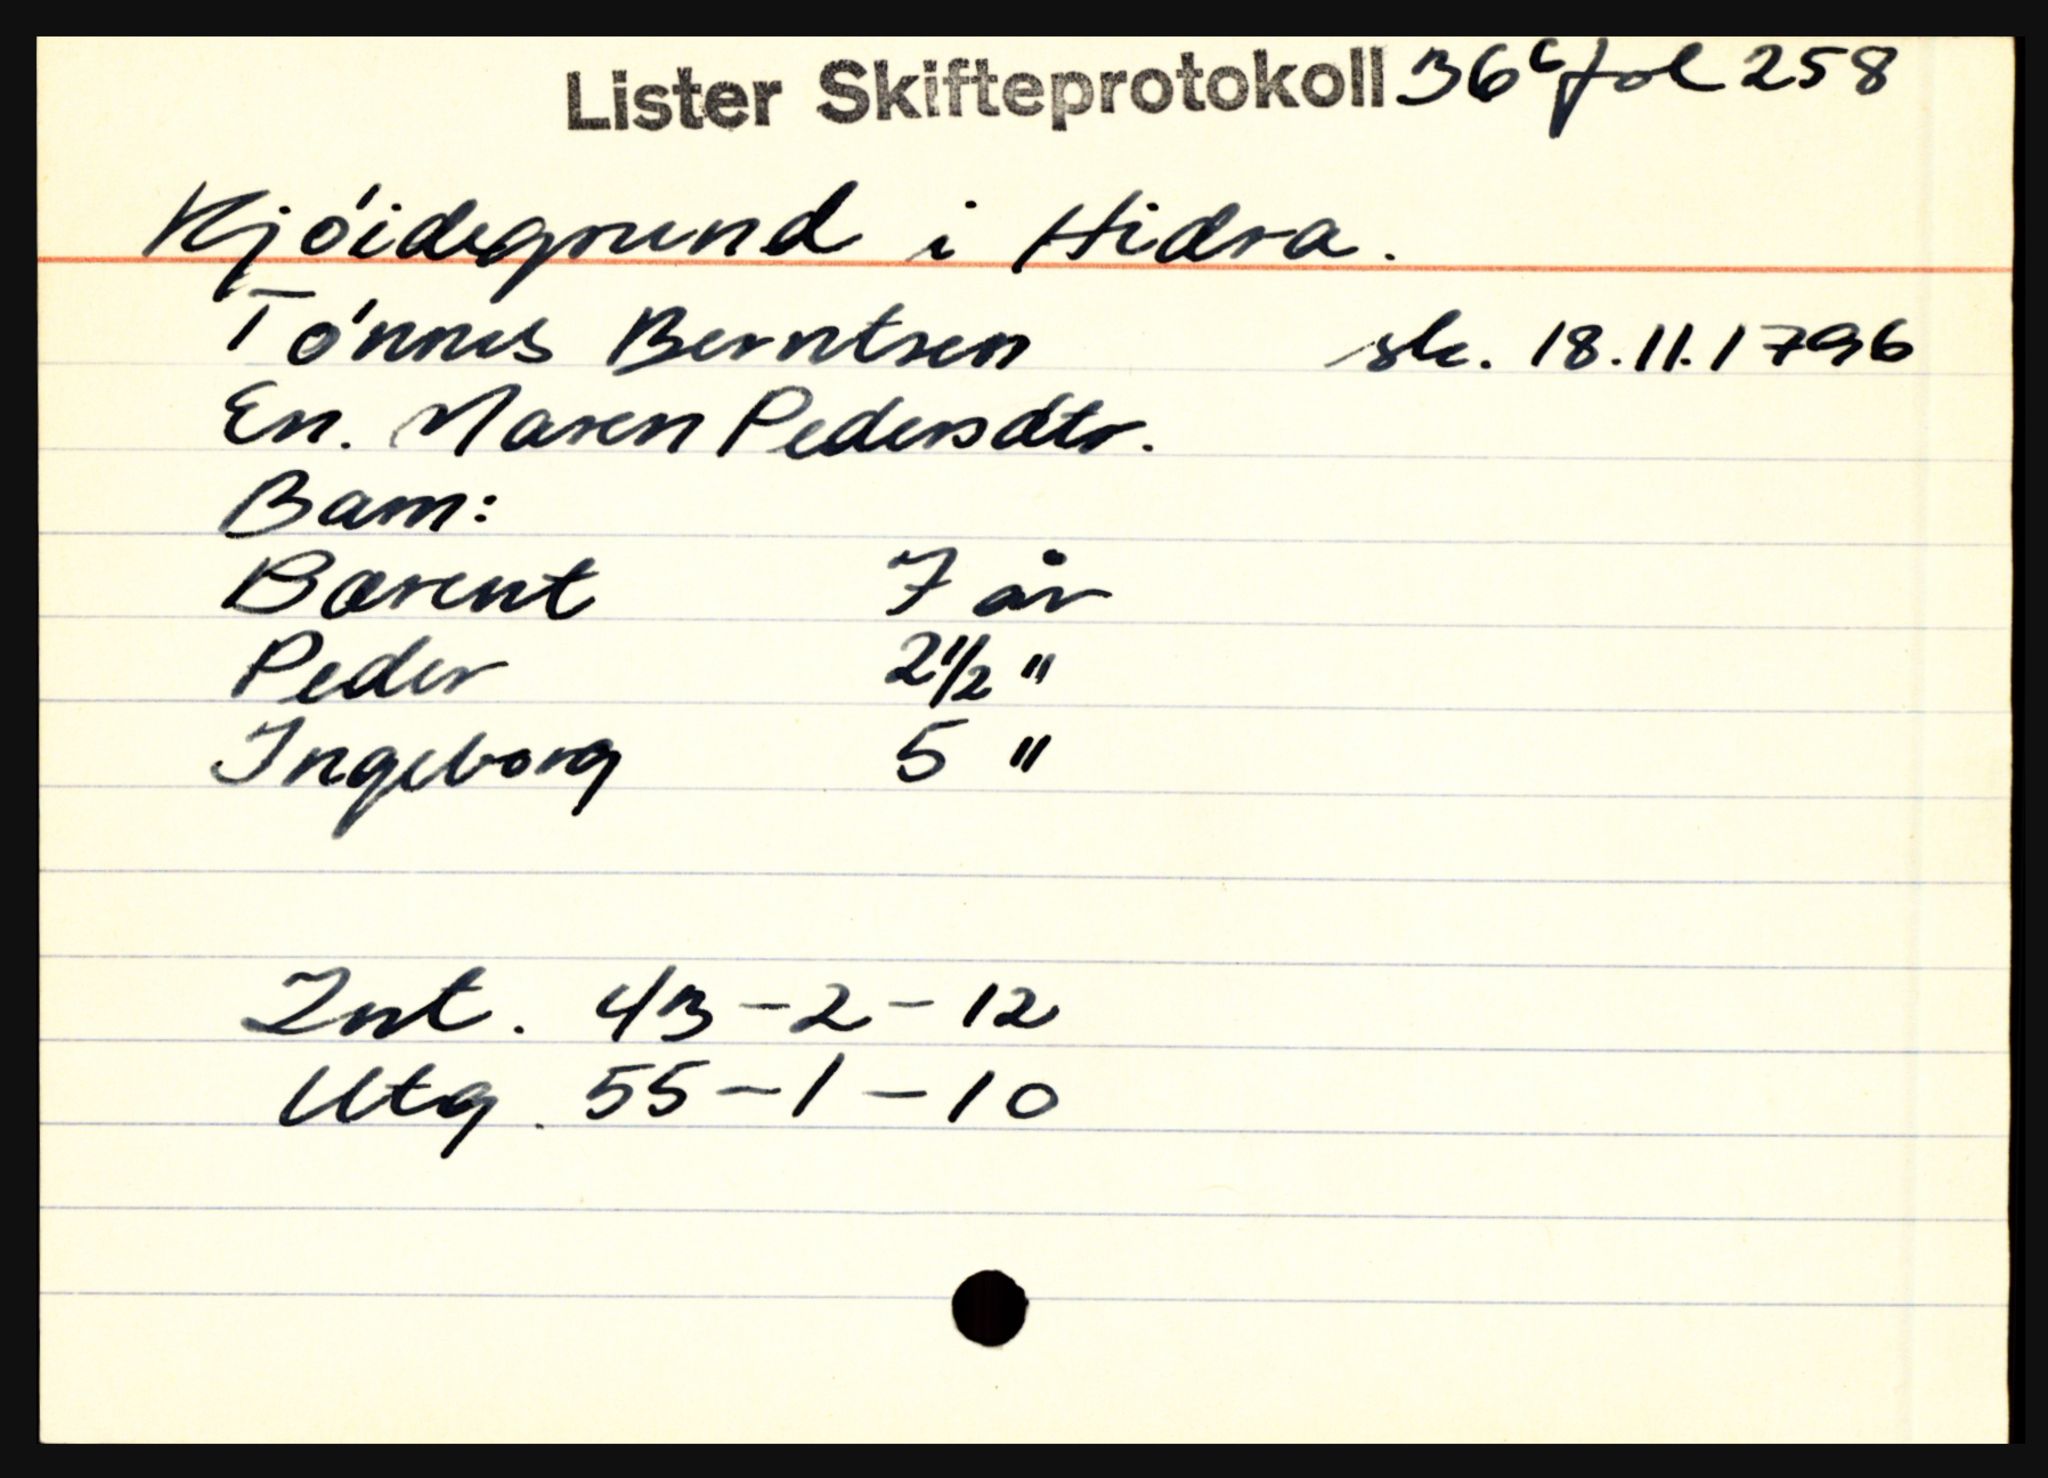 Lister Skifteprotokoll 36c fol 258
Kjóidegrund i Hidra.
Tónnes Berntsen sk. 18.11.1796
En. Maren Pedersdtr.
Barn:
Bærent 7 år
Peder 2 1/2 "
Ingeborg 5 "
Int. 43-2-12
Utg. 55-1-10